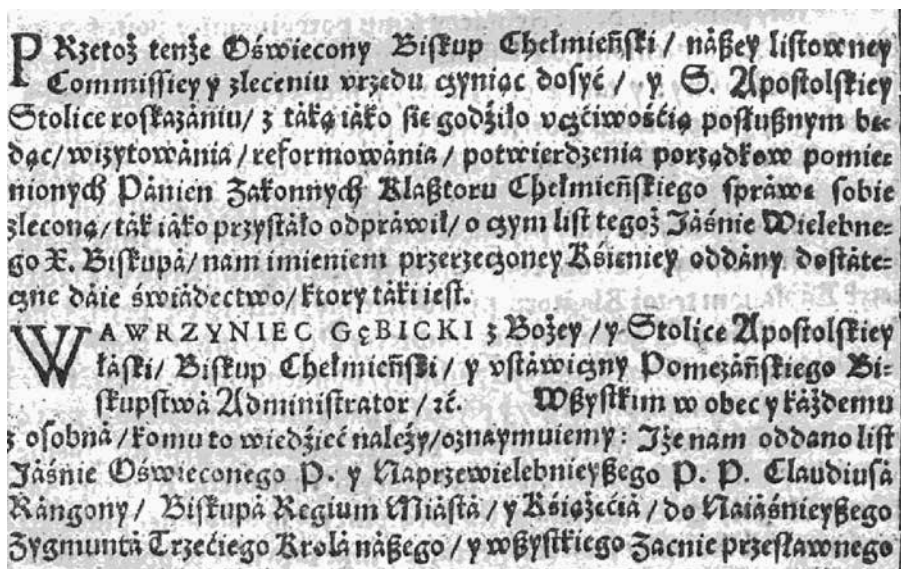 PRzetoż tenże Oświecony Biskup Chełmieński / nászey listowney
Commissiey y zleceniu vrzędu czyniąc dosyć / y S. Apostolskiey
Stolice roskazániu / z táką iáko się godźiło vczćiwośćią posłusznym bę-
dąc / wizytowánia / reformowánia / potwierdzenia porządkow pomie-
nionych Pánien Zakonnych Klasztoru Chełmieńskiego spráwę sobie
zleconą / ták iáko przystáło odpráwił / o czym list tegoż Jáśnie Wielebne-
go X. Biskupá / nam imieniem przerzeczoney Ksieniey oddány dostáte-
czne dáie świádectwo / ktory táki iest.
WAWRZYNIEC GĘBICKI z Bożey / y Stolice Apostolskiey
łáski / Biskup Chełmieński / y vstáwiczny Pomezáńskiego Bi-
skupstwá Administrator / ꝛc. Wszystkim w obec y káżdemu
z osobná / komu to wiedźieć należy / oznaymuiemy: Jże nam oddano list
Jáśnie Oświeconego P. y Naprzewielebnieyszego P. P. Claudiusá
Rángony / Biskupá Regium Miástá / y Kśiążęćiá / do Naiáśnieyszego
Zygmuntá Trzećiego Krolá nászego / y wszystkiego Zacnie przesławnego